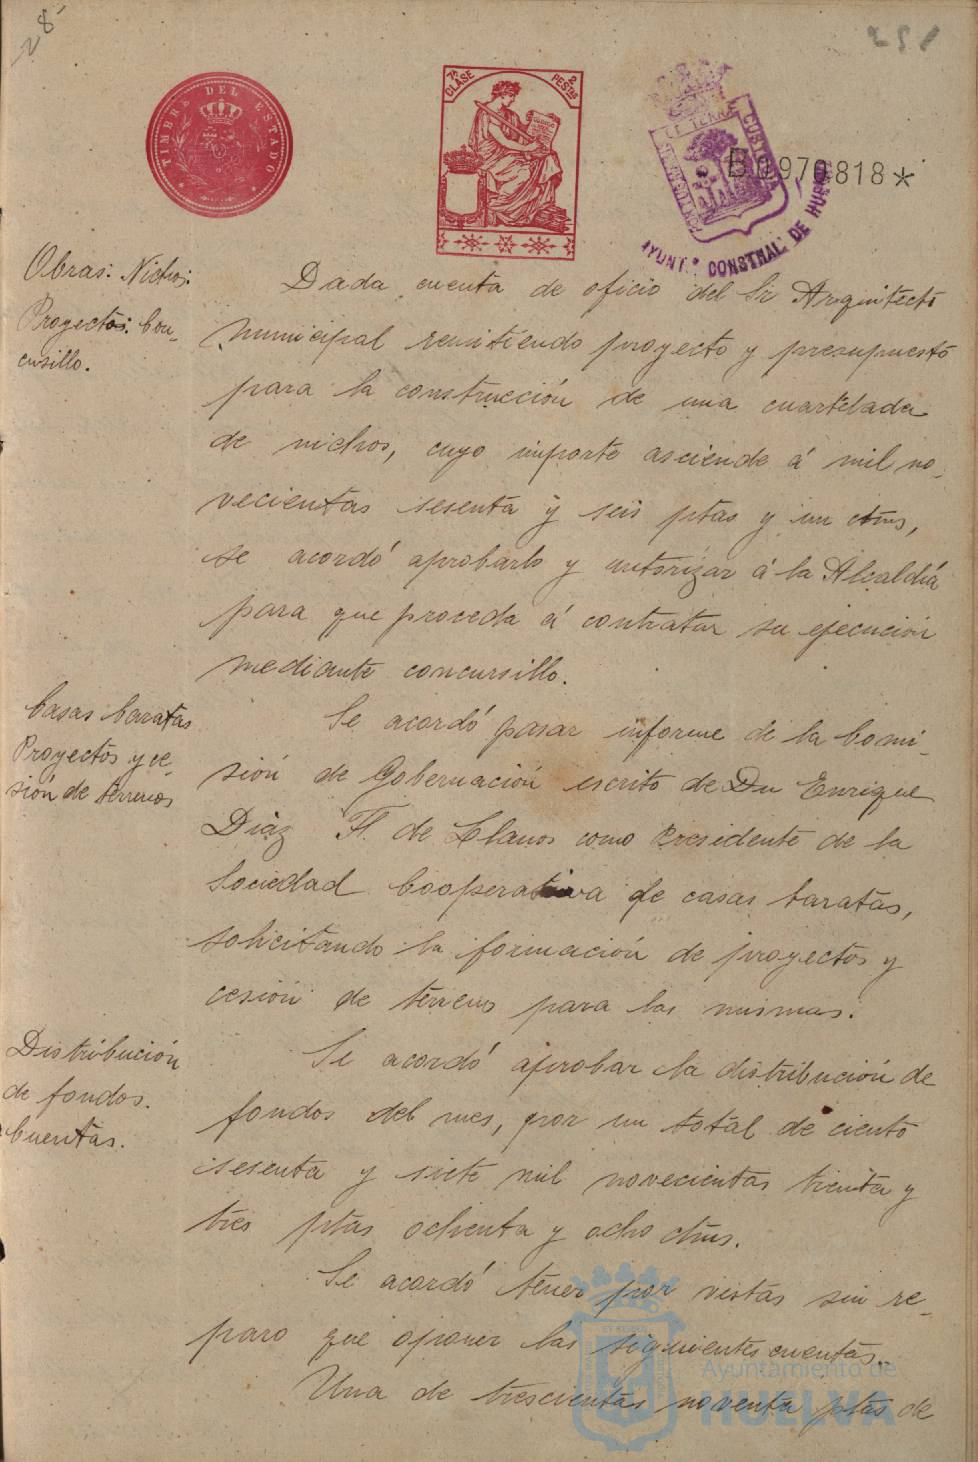 28
251
TIMBRE DEL ESTADO
7ª CLASE
2 PESTAS
B0970818*
AYUNTº CONSTNAL DE HUELVA
Obras: Nichos:
Proyectos: Con-
cursillo.
Dada cuenta de oficio del Sr Arquitecto
municipal remitiendo proyecto y presupuesto
para la construcción de una cuartelada
de nichos, cuyo importe asciende á mil no-
vecientas sesenta y seis ptas y un ctms,
se acordó aprobarlo y autorizar á la Alcaldía
para que proceda á contratar su ejecución
mediante concursillo.
Casas baratas
Proyectos y ce-
sión de terrenos
Se acordó pasar informe de la Comi-
sión de Gobernación escrito de Dn Enrique
Diaz F. de Llanos como Presidente de la
Sociedad Cooperativa de casas baratas,
solicitando la formación de proyectos y
cesión de terrenos para las mismas.
Distribución
de fondos.
Cuentas.
Se acordó aprobar la distribución de
fondos del mes, por un total de ciento
sesenta y siete mil novecientas treinta y
tres ptas ochenta y ocho ctms.
Se acordó tener por vistas sin re-
paro que oponer las siguientes cuentas..
Una de trescientas noventa ptas de
Ayuntamiento de
HUELVA